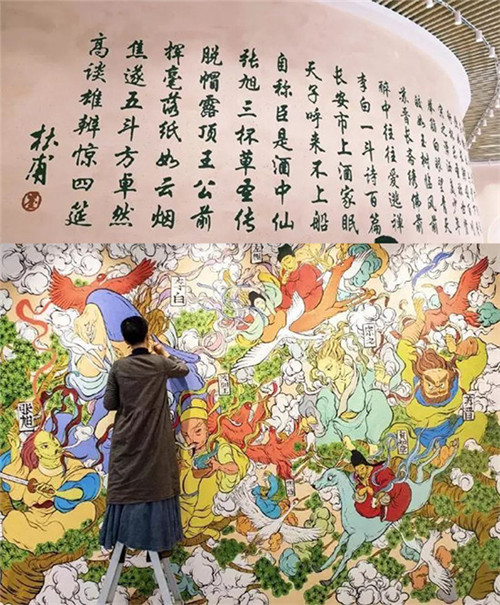 皎如玉树临风前
苏晋长斋绣佛前
醉中往往爱逃禅
李白一斗诗百篇
长安市上酒家眠
天子呼来不上船
自称臣是酒中仙
张旭三杯草圣传
脱帽露顶王公前
挥毫落纸如云烟
焦遂五斗方卓然
高谈雄辩惊四筵
杜甫
李白
张旭